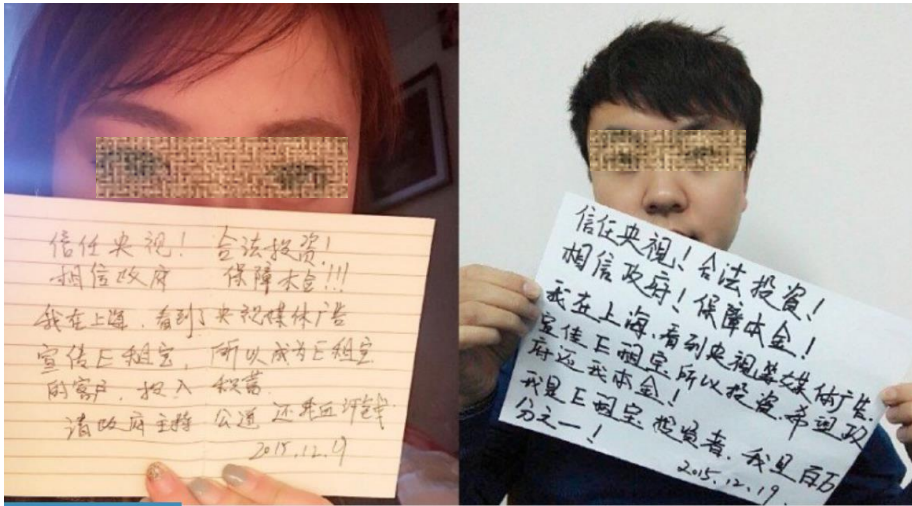 信任央视! 合法投资!
相信政府 保障本金!!!
我在上海，看到了央视媒体广告
宣传E租宝，所以成为E租宝
的客户，投入 积蓄.
请政府主持 公道 还我血汗钱
2015.12.19
信任央视! 合法投资!
相信政府! 保障本金!
我在上海，看到央视等媒体广告.
宣传E租宝，所以投资，希望政
府还我本金!
我是E租宝投资者，我是百万
分之一!
2015.12.19.